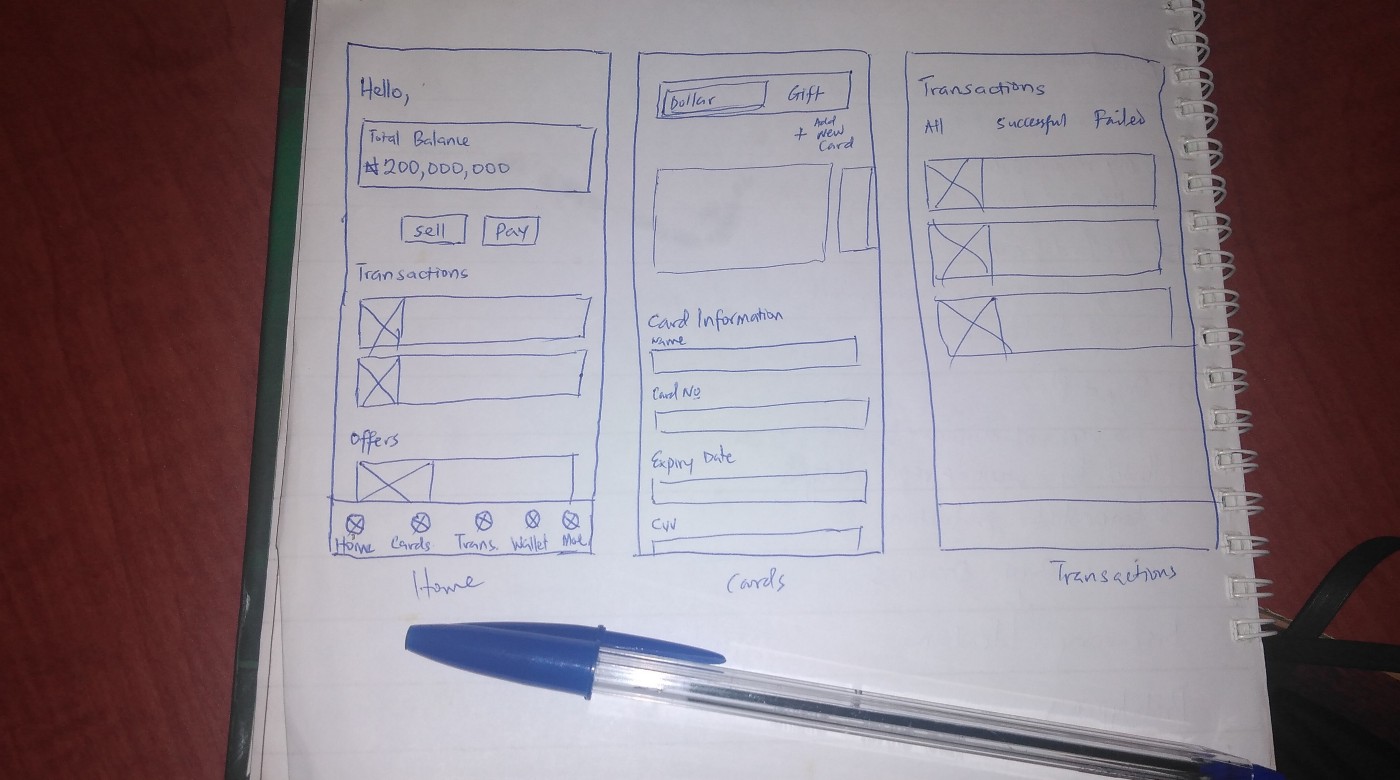 Hello,
Total Balance
₦200,000,000
sell
Pay
Transactions
Offers
Home
Cards
Trans.
Wallet
Home
Dollar
Gift
+ Add New Card
Card Information
Name
Card No
Expiry Date
CVV
Cards
Transactions
All
Successful
Failed
Transactions